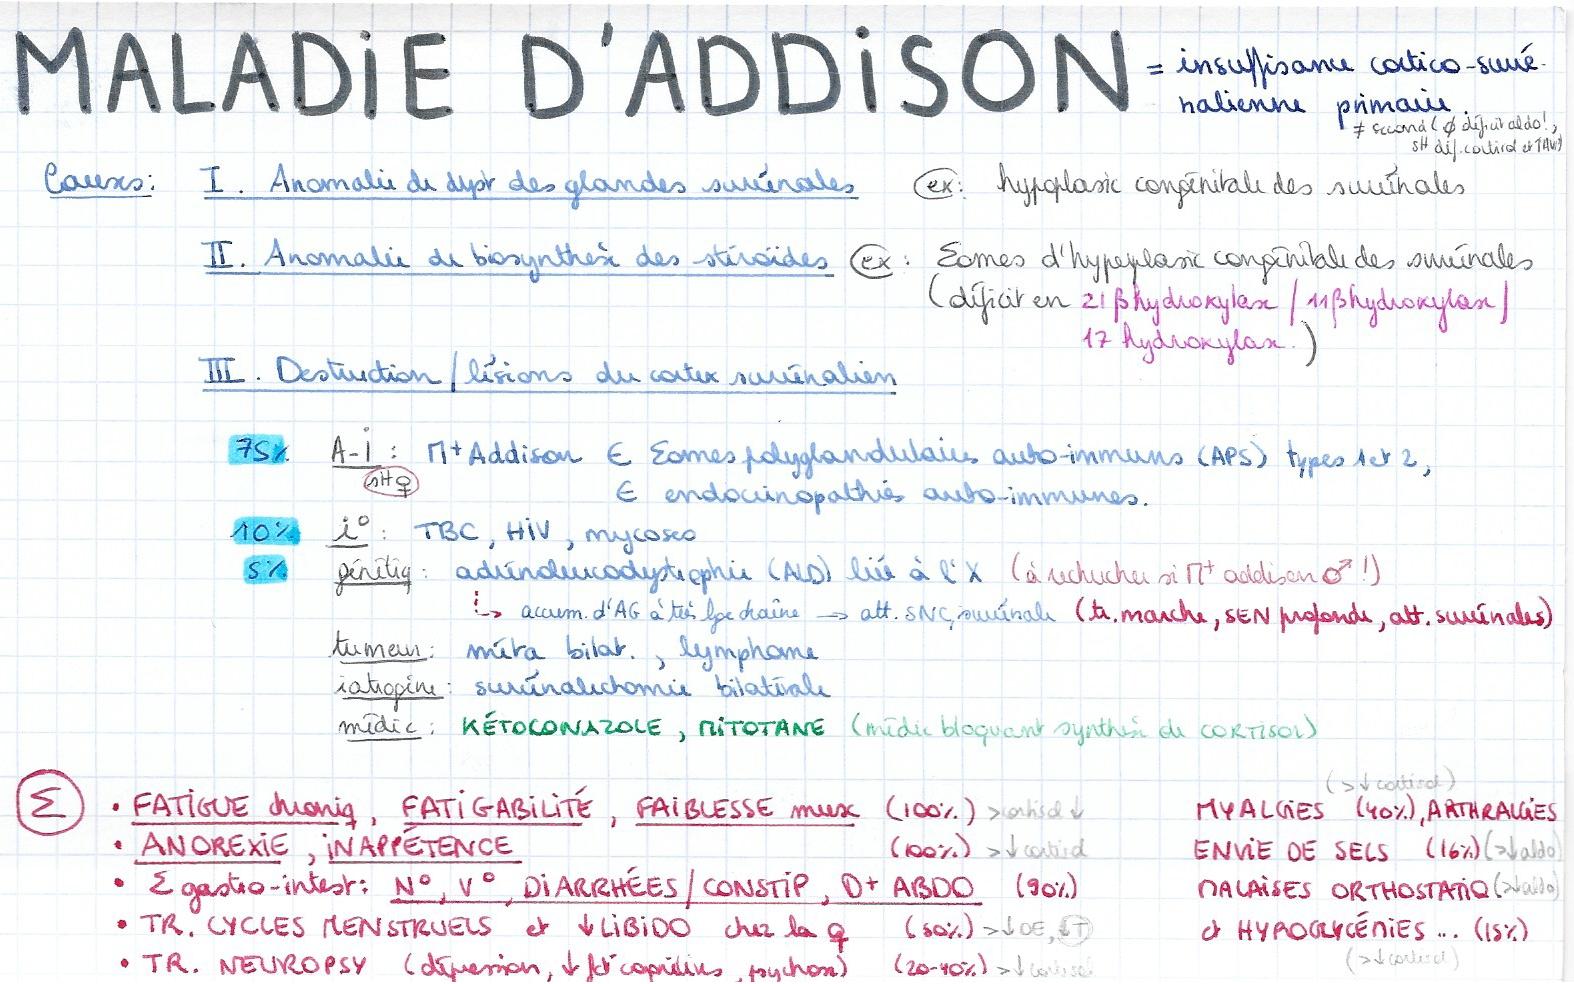 MALADIE D'ADDISON = insuffisance cortico-surré-
nalienne primaire.
≠ second (∅ déficit aldo!,
sH déf. cortisol et
Causes: I. Anomalie de dvpt des glandes surrénales ex: hypoplasie congénitale des surrénales
II. Anomalie de biosynthèse des stéroïdes ex: Σomes d'hyperplasie congénitale des surrénales
(déficit en 21βhydroxylase / 11βhydroxylase /
17 hydroxylase.)
III. Destruction/lésions du cortex surrénalien
75% A-i: Π+ Addison ∈ Σomes polyglandulaires auto-immuns (APS) types 1 et 2,
sH♀ ∈ endocrinopathies auto-immunes.
10% i°: TBC, HIV, mycoses
5% génétiq: adrénoleucodystrophie (ALD) liée à l'X (à rechercher si Π+ addison ♂!)
↳ accum. d'AG à très lgue chaîne → att. SNC, surrénale (tr. marche, SEN profonde, att. surrénales)
tumeur: méta bilat., lymphome
iatrogène: surrénalectomie bilatérale
médic: KÉTOCONAZOLE, MITOTANE (médic bloquant synthèse de CORTISOL)
Σ • FATIGUE chroniq, FATIGABILITÉ, FAIBLESSE musc (100%) > cortisol ↓
• ANOREXIE, INAPPÉTENCE (100%) > ↓ cortisol
• Σ gastro-intest: N°, V°, DIARRHÉES/CONSTIP, D+ ABDO (90%)
• TR. CYCLES MENSTRUELS et ↓ LIBIDO chez la ♀ (50%) > ↓ OE, ↓T
• TR. NEUROPSY (dépression, ↓ fct cognitives, psychose) (20-40%) > ↓ cortisol
(> ↓ cortisol)
MYALGIES (40%), ARTHRALGIES
ENVIE DE SELS (16%) (> ↓ aldo)
MALAISES ORTHOSTATIQ (> ↓ aldo)
et HYPOGLYCÉMIES ... (15%)
(> ↓ cortisol)